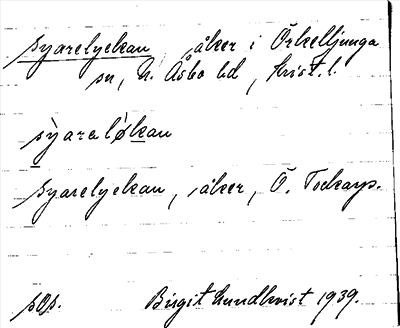 syarelyckan, åker i Örkelljunga
sn, N. Åsbo hd, Krist. l.
sỳaraløkan
syarelyckan, åker, Ö. Tockarp.
pop. Birgit Lundkvist 1939.